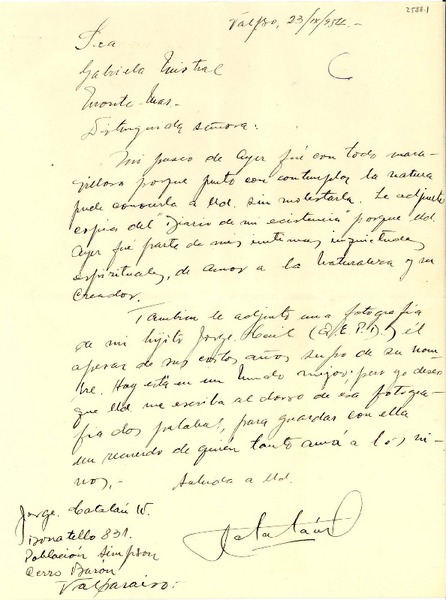 2588.1
Valpso, 23/IX/954.-
Sra
Gabriela Mistral
Monte-Mar.-
Distinguida señora:
Mi paseo de ayer fué con todo mara-
villoso porque junto con contemplar la natura
pude conocerla a Ud. sin molestarla. Le adjunto
copias del "Diario de mi existencia" porque Ud.
ayer fué parte de mis íntimas inquietudes
espirituales, de amor a la Naturaleza y su
Creador.
Tambien le adjunto una fotografía
de mi hijito Jorge (Q.E.P.D.) él
apesar de sus cortos años supo de su nom-
bre. Hoy está en un mundo mejor, pero yo deseo
que Ud. me escriba al dorso de esa fotogra-
fía dos palabras, para guardar con ella
un recuerdo de quién tanto ama a los ni-
ños.-
Saluda a Ud.
Jorge Catalán W.
Donatello 831.
Población Simpson
Cerro Barón
Valparaiso.
Catalán